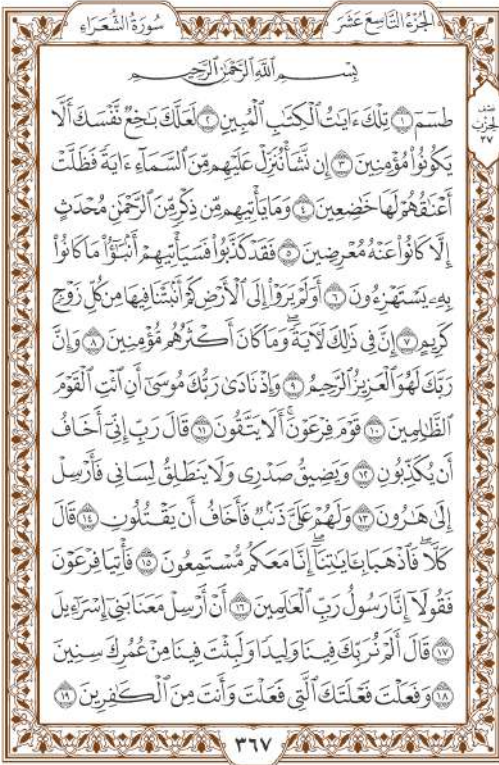 الجُزْءُ التَّاسِعَ عَشَرَ
سُورَةُ الشُّعَرَاءِ
بِسْمِ اللَّهِ الرَّحْمَٰنِ الرَّحِيمِ
نصف
الحزب
٣٧
طسٓمٓ ١ تِلۡكَ ءَايَٰتُ ٱلۡكِتَٰبِ ٱلۡمُبِينِ ٢ لَعَلَّكَ بَٰخِعٞ نَّفۡسَكَ أَلَّا
يَكُونُواْ مُؤۡمِنِينَ ٣ إِن نَّشَأۡ نُنَزِّلۡ عَلَيۡهِم مِّنَ ٱلسَّمَآءِ ءَايَةٗ فَظَلَّتۡ
أَعۡنَٰقُهُمۡ لَهَا خَٰضِعِينَ ٤ وَمَا يَأۡتِيهِم مِّن ذِكۡرٖ مِّنَ ٱلرَّحۡمَٰنِ مُحۡدَثٍ
إِلَّا كَانُواْ عَنۡهُ مُعۡرِضِينَ ٥ فَقَدۡ كَذَّبُواْ فَسَيَأۡتِيهِمۡ أَنۢبَٰٓؤُاْ مَا كَانُواْ
بِهِۦ يَسۡتَهۡزِءُونَ ٦ أَوَلَمۡ يَرَوۡاْ إِلَى ٱلۡأَرۡضِ كَمۡ أَنۢبَتۡنَا فِيهَا مِن كُلِّ زَوۡجٖ
كَرِيمٍ ٧ إِنَّ فِي ذَٰلِكَ لَأٓيَةٗۖ وَمَا كَانَ أَكۡثَرُهُم مُّؤۡمِنِينَ ٨ وَإِنَّ
رَبَّكَ لَهُوَ ٱلۡعَزِيزُ ٱلرَّحِيمُ ٩ وَإِذۡ نَادَىٰ رَبُّكَ مُوسَىٰٓ أَنِ ٱئۡتِ ٱلۡقَوۡمَ
ٱلظَّٰلِمِينَ ١٠ قَوۡمَ فِرۡعَوۡنَۚ أَلَا يَتَّقُونَ ١١ قَالَ رَبِّ إِنِّيٓ أَخَافُ
أَن يُكَذِّبُونِ ١٢ وَيَضِيقُ صَدۡرِي وَلَا يَنطَلِقُ لِسَانِي فَأَرۡسِلۡ
إِلَىٰ هَٰرُونَ ١٣ وَلَهُمۡ عَلَيَّ ذَنۢبٞ فَأَخَافُ أَن يَقۡتُلُونِ ١٤ قَالَ
كَلَّاۖ فَٱذۡهَبَا بِـَٔايَٰتِنَآۖ إِنَّا مَعَكُم مُّسۡتَمِعُونَ ١٥ فَأۡتِيَا فِرۡعَوۡنَ
فَقُولَآ إِنَّا رَسُولُ رَبِّ ٱلۡعَٰلَمِينَ ١٦ أَنۡ أَرۡسِلۡ مَعَنَا بَنِيٓ إِسۡرَٰٓءِيلَ
١٧ قَالَ أَلَمۡ نُرَبِّكَ فِينَا وَلِيدٗا وَلَبِثۡتَ فِينَا مِنۡ عُمُرِكَ سِنِينَ
١٨ وَفَعَلۡتَ فَعۡلَتَكَ ٱلَّتِي فَعَلۡتَ وَأَنتَ مِنَ ٱلۡكَٰفِرِينَ ١٩
٣٦٧